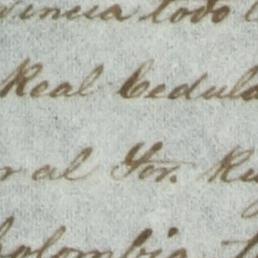 vincia todo
Real Cedula
ral Sor. R
Colombia